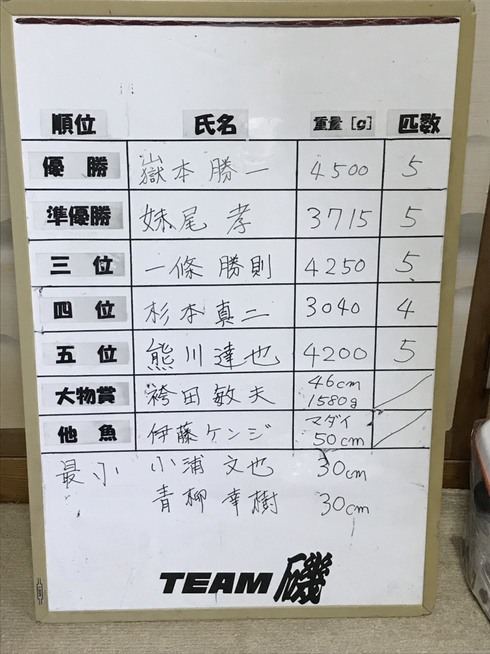 順位 氏名 重量[g] 匹数
優勝 嶽本勝一 4500 5
準優勝 妹尾孝 3715 5
三位 一條勝則 4250 5
四位 杉本真二 3040 4
五位 熊川達也 4200 5
大物賞 袴田敏夫 46cm 1580g
他魚 伊藤ケンジ マダイ 50cm
最小 小浦文也 30cm
青柳幸樹 30cm
TEAM磯